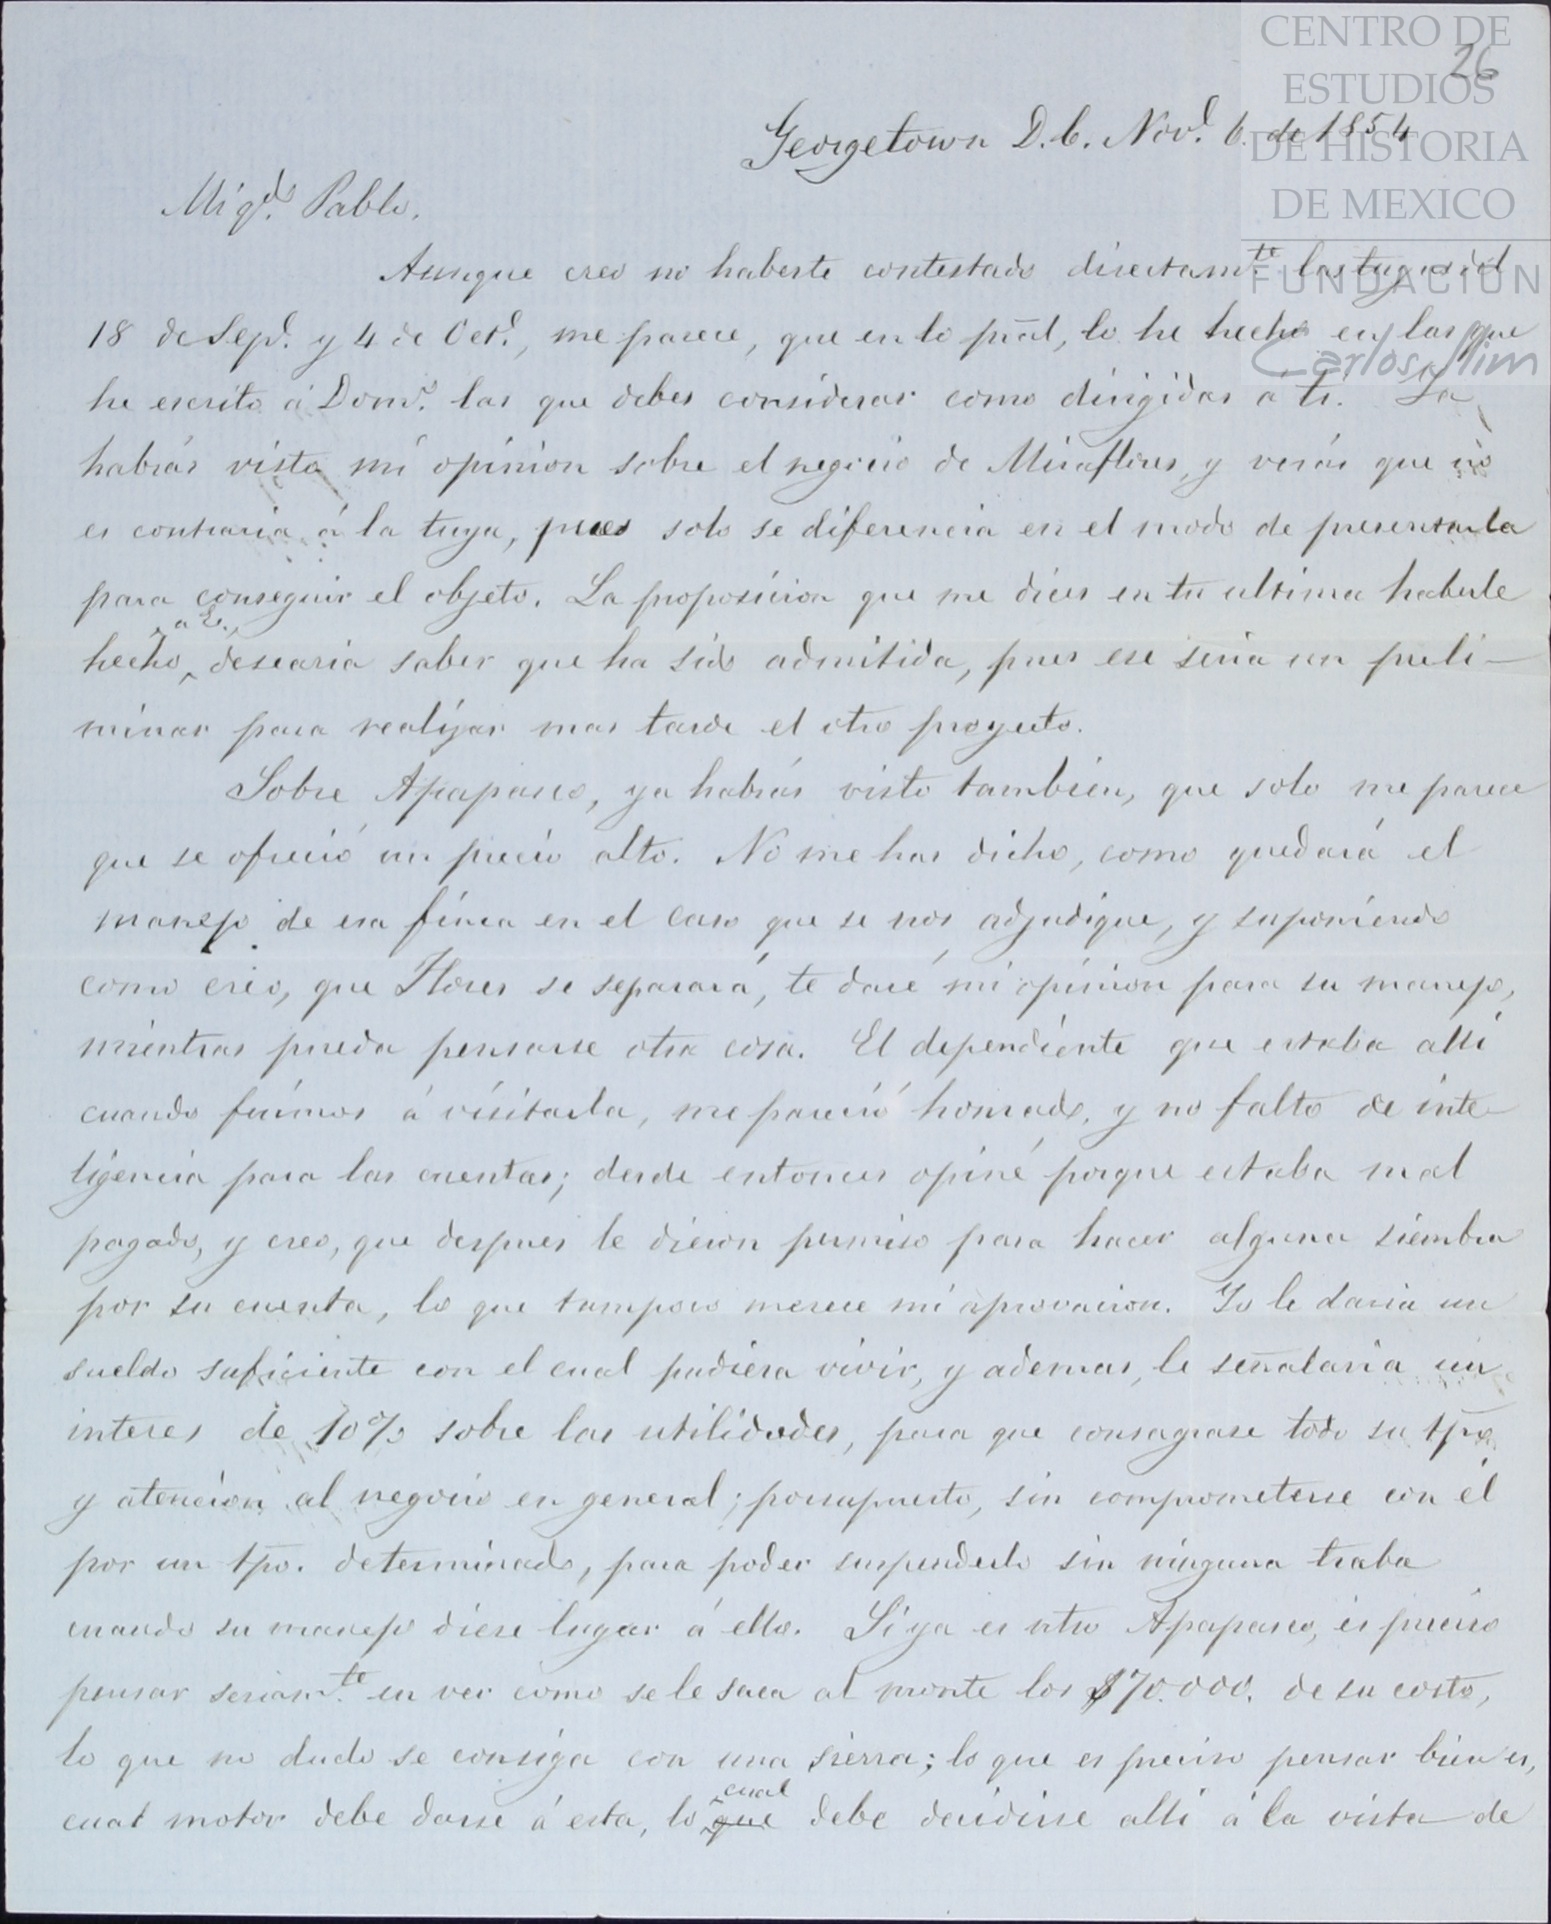 CENTRO DE
ESTUDIOS
DE HISTORIA
DE MEXICO
FUNDACIÓN
Carlos Slim
26
Georgetown D.C. Nov.e 6. de 1854
Mi q.do Pablo.
Aunque creo no haberte contestado directam.te las tuyas del
18 de Sep.e y 4 de Oct.e, me parece, que en lo pral, lo he hecho en las que
he escrito á Dom.o las que debes considerar como dirigidas á tí. Ya
habrás visto mi opinion sobre el negocio de Miraflores, y verás que no
es contraria á la tuya, pues solo se diferencia en el modo de presentarla
para conseguir el objeto. La proposicion que me dices en tu ultima haberle
hecho, desearia saber que ha sido admitida, pues ese seria un preli-
minar para realizar mas tarde el otro proyecto.
Sobre Apapasco, ya habrás visto tambien, que solo me parece
que se ofreció un precio alto. No me has dicho, como quedará el
manejo de esa finca en el caso que se nos adjudique, y suponiendo
como creo, que Flores se separará, te daré mi opinion para su manejo,
mientras pueda pensarse otra cosa. El dependiente que estaba allí
cuando fuimos á visitarla, me pareció honrado, y no falto de inte-
ligencia para las cuentas; desde entonces opiné porque estaba mal
pagado, y creo, que despues le dieron permiso para hacer alguna siembra
por su cuenta, lo que tampoco merece mi aprovacion. Yo le daria un
sueldo suficiente con el cual pudiera vivir, y ademas, le señalaria un
interes de 10% sobre las utilidades, para que consagrase todo su tpo
y atencion al negocio en general; porsupuesto, sin comprometerse con él
por un tpo. determinado, para poder suspenderlo sin ninguna traba
cuando su manejo diese lugar á ello. Si ya es ntro Apapasco, es preciso
pensar seriam.te en ver como se le saca al monte los $70.000. de su costo,
lo que no dudo se consiga con una sierra; lo que es preciso pensar bien es,
cual motor debe darse á esta, lo que cual debe decidirse allí á la vista de